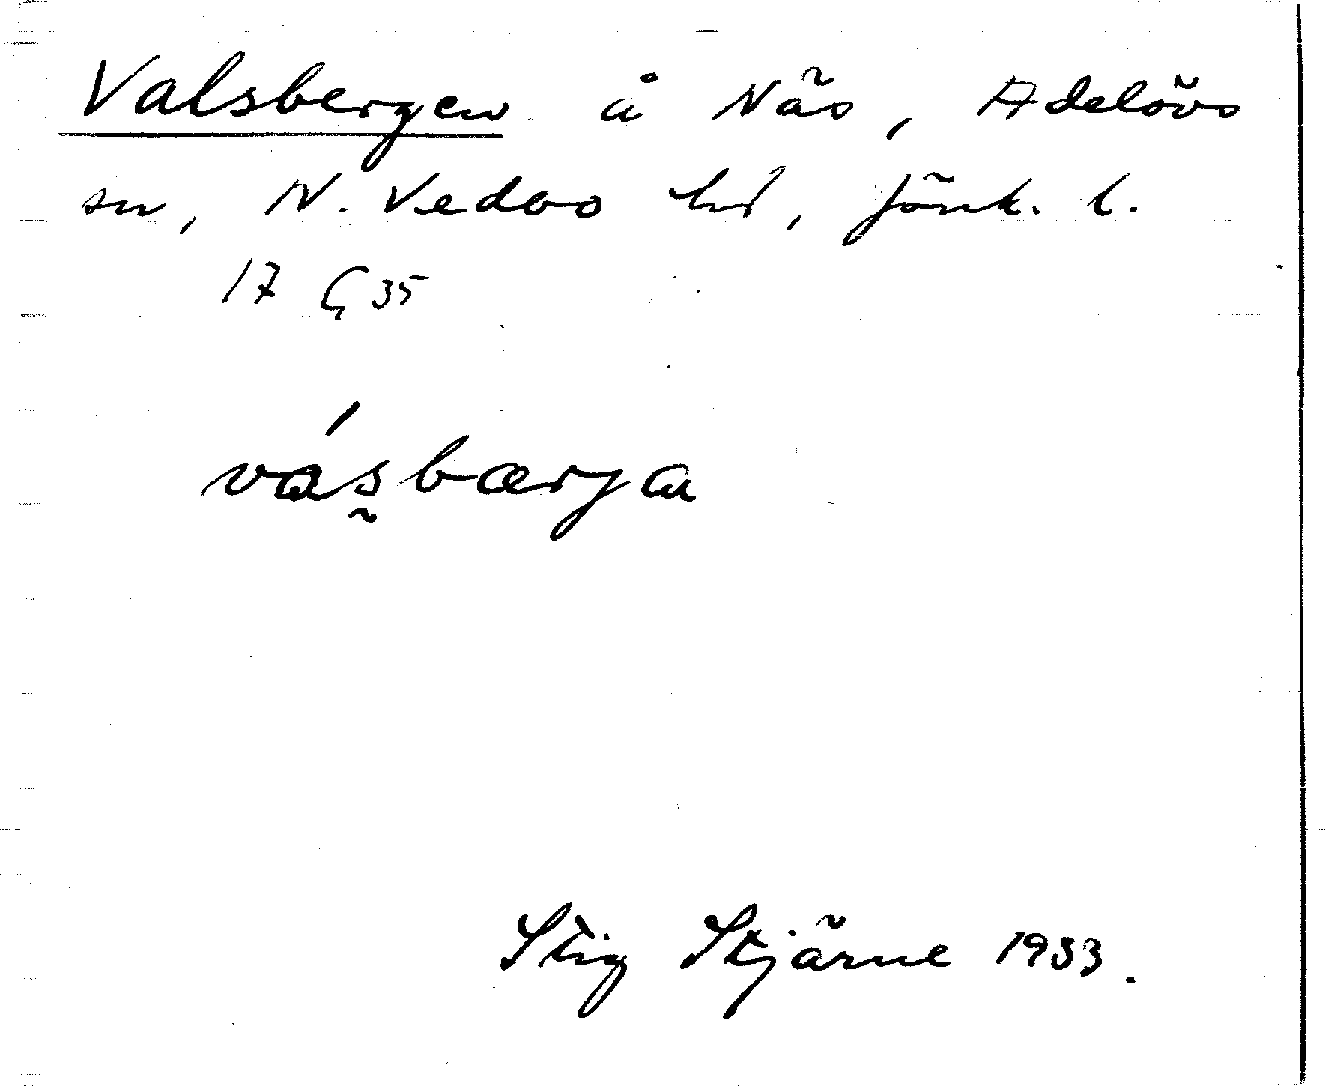 Valsbergen å Näs, Adelövs
sn, N. Vedbo hd, Jönk. l.
17 Ç 35
vásbærja
Stig Stjärne 1933.